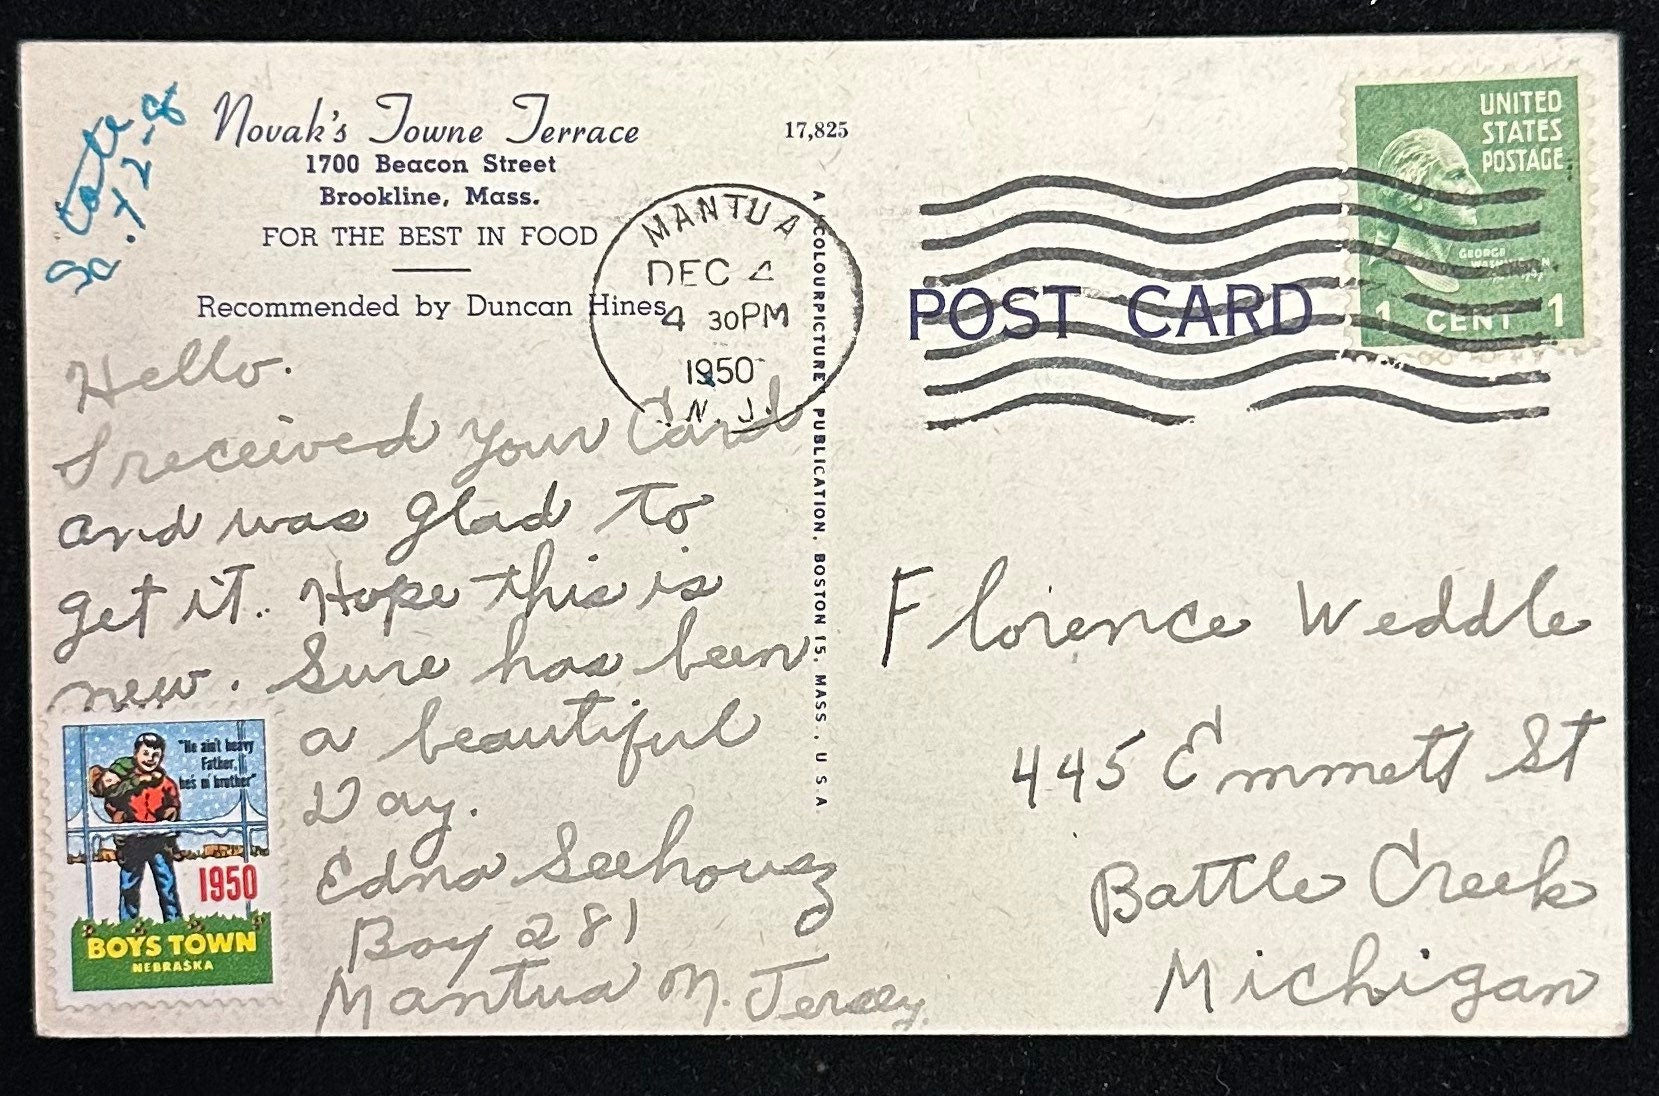 Novak's Towne Terrace
1700 Beacon Street
Brookline, Mass.
FOR THE BEST IN FOOD
Recommended by Duncan Hines
17,825
12-8
MANTUA
DEC 4
4 30PM
1950
N.J.
A COLOURPICTURE PUBLICATION, BOSTON 15, MASS., U S A
POST CARD
UNITED
STATES
POSTAGE
GEORGE
WASHINGTON
1 CENT 1
Hello.
I received your Card
and was glad to
get it. Hope this is
new. Sure has been
a beautiful
Day.
Edna
Box 281
Mantua N. Jersey.
"He ain't heavy
Father,
he's m' brother"
1950
BOYS TOWN
NEBRASKA
Florence Weddle
445 Emmett St
Battle Creek
Michigan